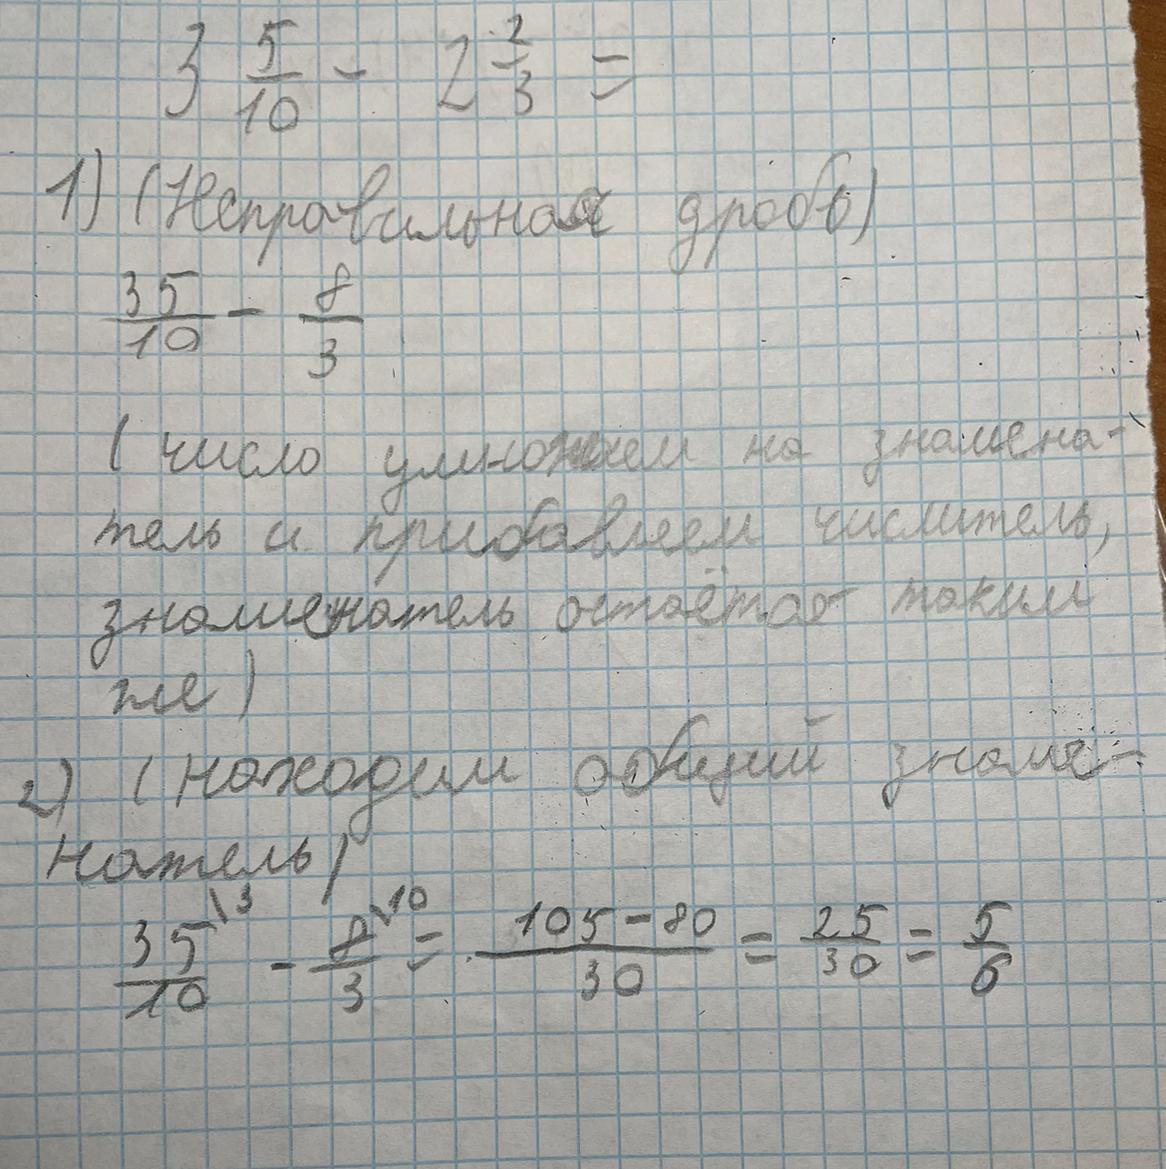 3 5/10 - 2 2/3 =
1) (Неправильная дробь)
35/10 - 8/3
( число умножаем на знамена-
тель и прибавляем числитель,
знаменатель остаётся таким
же)
2) (находим общий знаме-
натель)
35/10 \3 - 8/3 \10 = 105-80/30 = 25/30 = 5/6